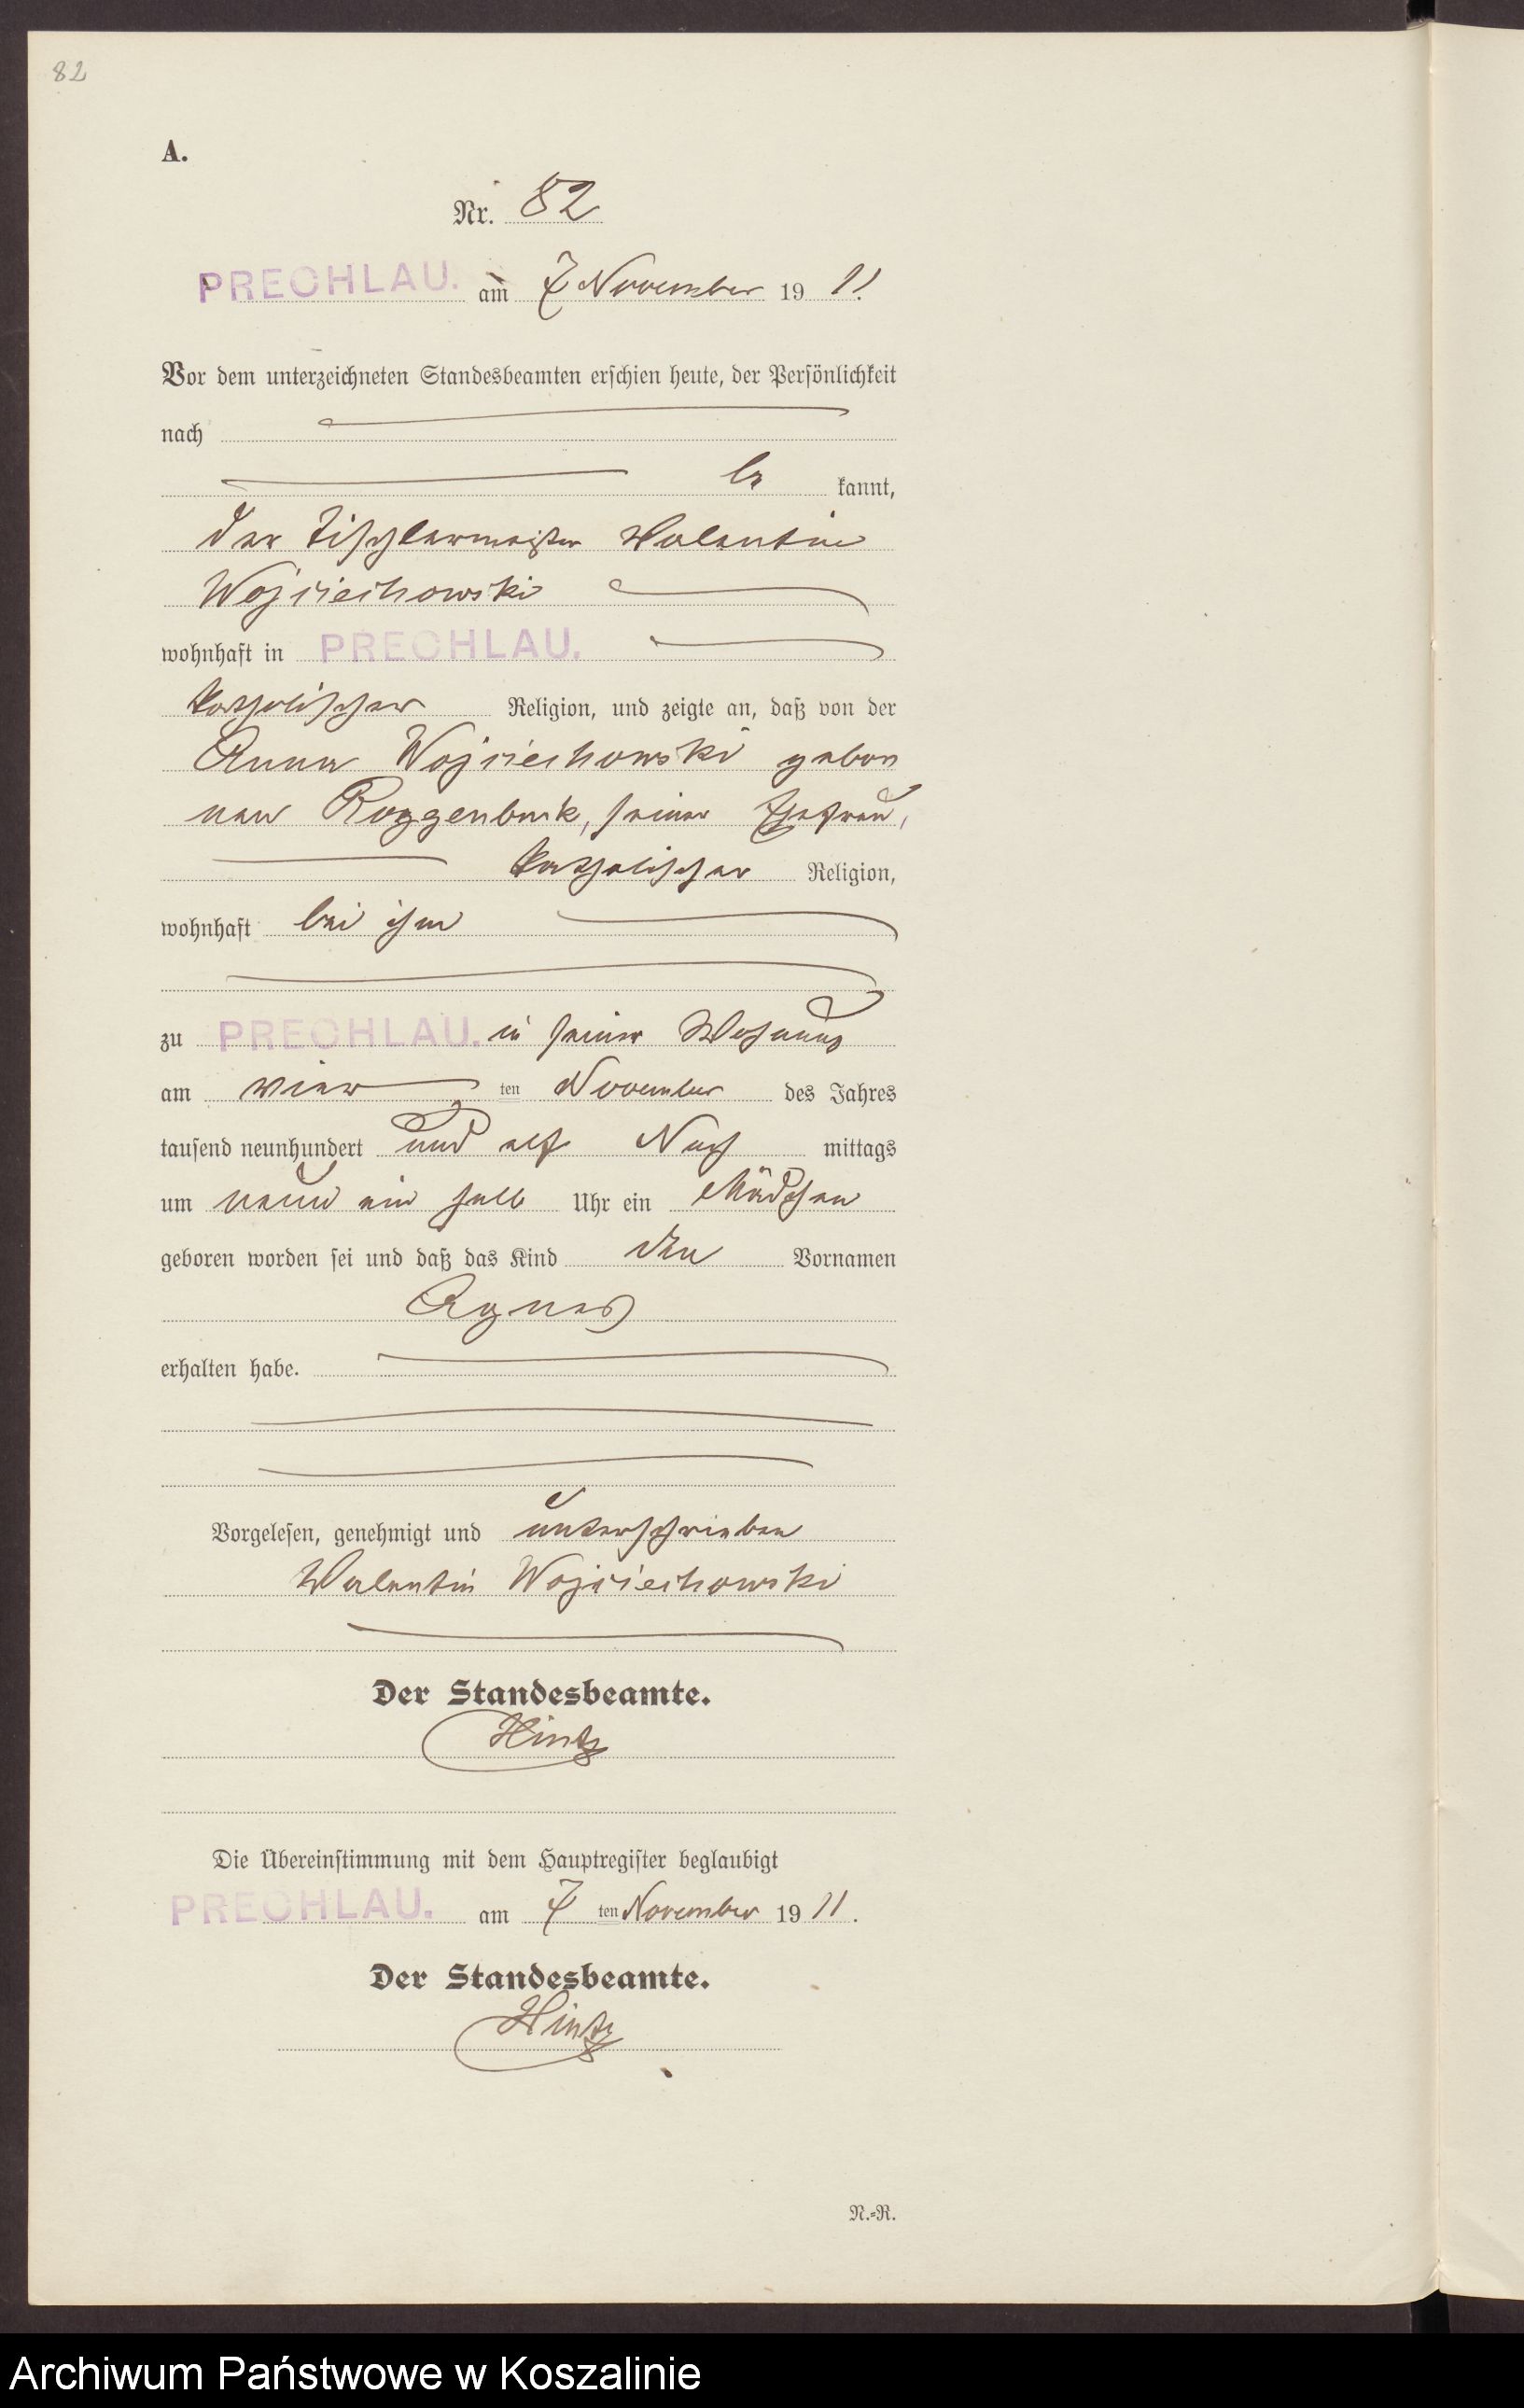 82
A.
Nr. 82
PRECHLAU. am 7 November 19 11.
Vor dem unterzeichneten Standesbeamten erschien heute, der Persönlichkeit
nach
be kannt,
der Tischlermeister Valentin
Wojciechowski
wohnhaft in PRECHLAU.
katholischer Religion, und zeigte an, daß von der
Anna Wojciechowski gebor
nen Roggenbuk, seiner Ehefrau,
katholischer Religion,
wohnhaft bei ihm
zu PRECHLAU. in seiner Wohnung
am vier ten November des Jahres
tausend neunhundert und elf Nach mittags
um neun ein halb Uhr ein Mädchen
geboren worden sei und daß das Kind den Vornamen
Agnes
erhalten habe.
Vorgelesen, genehmigt und unterschrieben
Valentin Wojciechowski
Der Standesbeamte.
Hintz
Die Übereinstimmung mit dem Hauptregister beglaubigt
PRECHLAU. am 7 ten November 19 11.
Der Standesbeamte.
Hintz
N.=R.
Archiwum Państwowe w Koszalinie